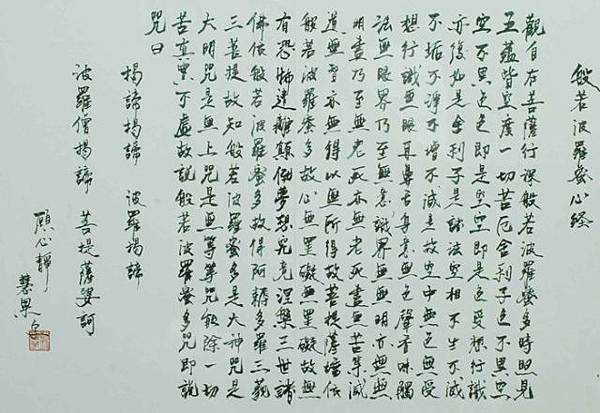 般若波羅蜜心经
觀自在菩薩行深般若波羅蜜多時照見
五蘊皆空度一切苦厄舍利子色不異空
空不異色色即是空空即是色受想行識
亦復如是舍利子是諸法空相不生不滅
不垢不淨不增不減是故空中無色無受
想行識無眼耳鼻舌身意無色聲香味觸
法無眼界乃至無意識界無無明亦無無
明盡乃至無老死亦無老死盡無苦集滅
道無智亦無得以無所得故菩提薩埵依
般若波羅蜜多故心無罣礙無罣礙故無
有恐怖遠離顛倒夢想究竟涅槃三世諸
佛依般若波羅蜜多故得阿耨多羅三藐
三菩提故知般若波羅蜜多是大神咒是
大明咒是無上咒是無等等咒能除一切
苦真實不虛故說般若波羅蜜多咒即說
咒曰
揭諦揭諦 波羅揭諦
波羅僧揭諦 菩提薩婆訶
願心靜
慧果